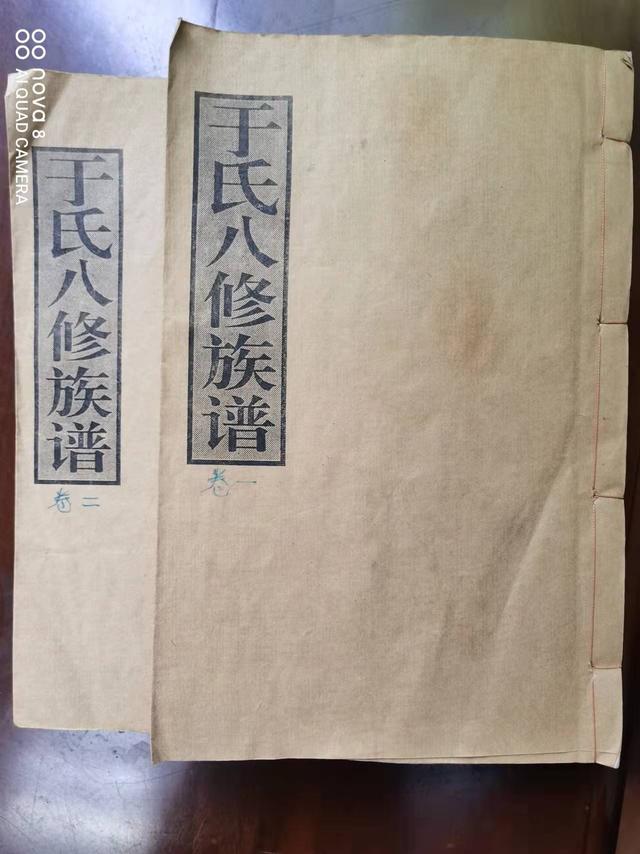 于氏八修族谱
卷一
于氏八修族谱
卷二
nova 8
AI QUAD CAMERA